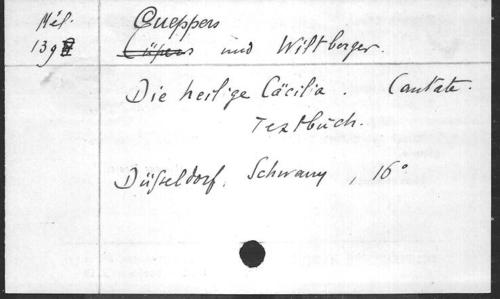 Mél. Cueppers
139 und Wiltberger.
Die heilige Cäcilia. Cantate.
Textbuch.
Düsseldorf. Schwann, 16°